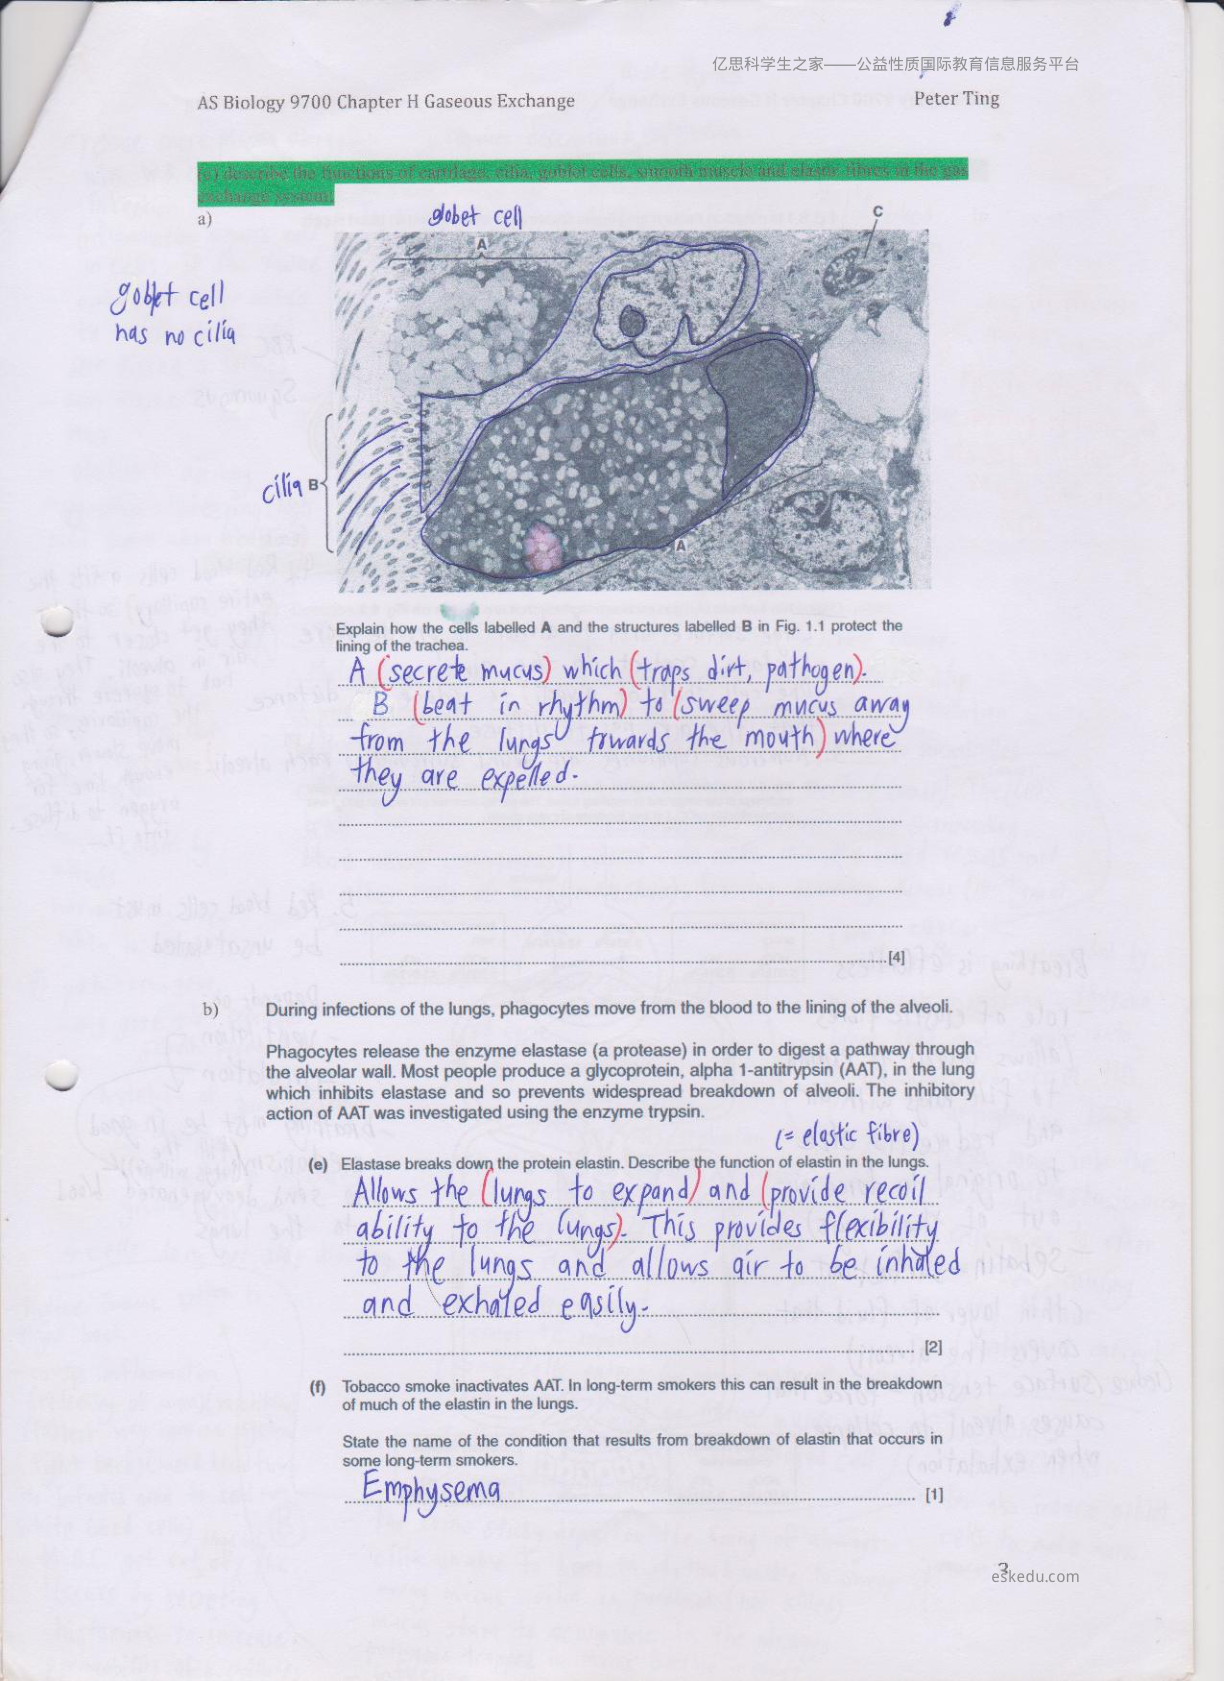 亿思科学生之家——公益性质国际教育信息服务平台
AS Biology 9700 Chapter H Gaseous Exchange Peter Ting
(c) describe the functions of cartilage, cilia, goblet cells, smooth muscle and elastic fibres in the gas
exchange system.
a)
globet cell
C
A
goblet cell
has no cilia
cilia B
A
Explain how the cells labelled A and the structures labelled B in Fig. 1.1 protect the
lining of the trachea.
A (secrete mucus) which (traps dirt, pathogen).
B (beat in rhythm) to (sweep mucus away
from the lungs towards the mouth) where
they are expelled.
[4]
b) During infections of the lungs, phagocytes move from the blood to the lining of the alveoli.
Phagocytes release the enzyme elastase (a protease) in order to digest a pathway through
the alveolar wall. Most people produce a glycoprotein, alpha 1-antitrypsin (AAT), in the lung
which inhibits elastase and so prevents widespread breakdown of alveoli. The inhibitory
action of AAT was investigated using the enzyme trypsin.
(= elastic fibre)
(e) Elastase breaks down the protein elastin. Describe the function of elastin in the lungs.
Allows the (lungs to expand) and (provide recoil
ability to the lungs). This provides flexibility
to the lungs and allows air to be inhaled
and exhaled easily.
[2]
(f) Tobacco smoke inactivates AAT. In long-term smokers this can result in the breakdown
of much of the elastin in the lungs.
State the name of the condition that results from breakdown of elastin that occurs in
some long-term smokers.
Emphysema
[1]
3
eskedu.com